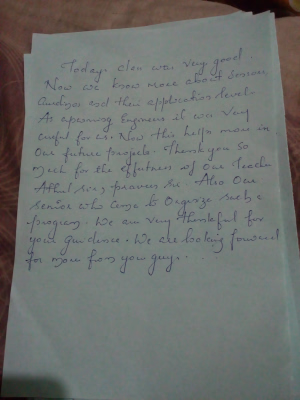 Today's class was very good.
Now we know more about Sensors
and their application level.
As upcoming Engineers it was very
useful for us. Now this helps more in
our future projects. Thank you so
much for the of our teacher
sir, sir. Also our
senior who to organize such a
program. We are very thankful for
your guidance. We are looking forward
for more from you guys.